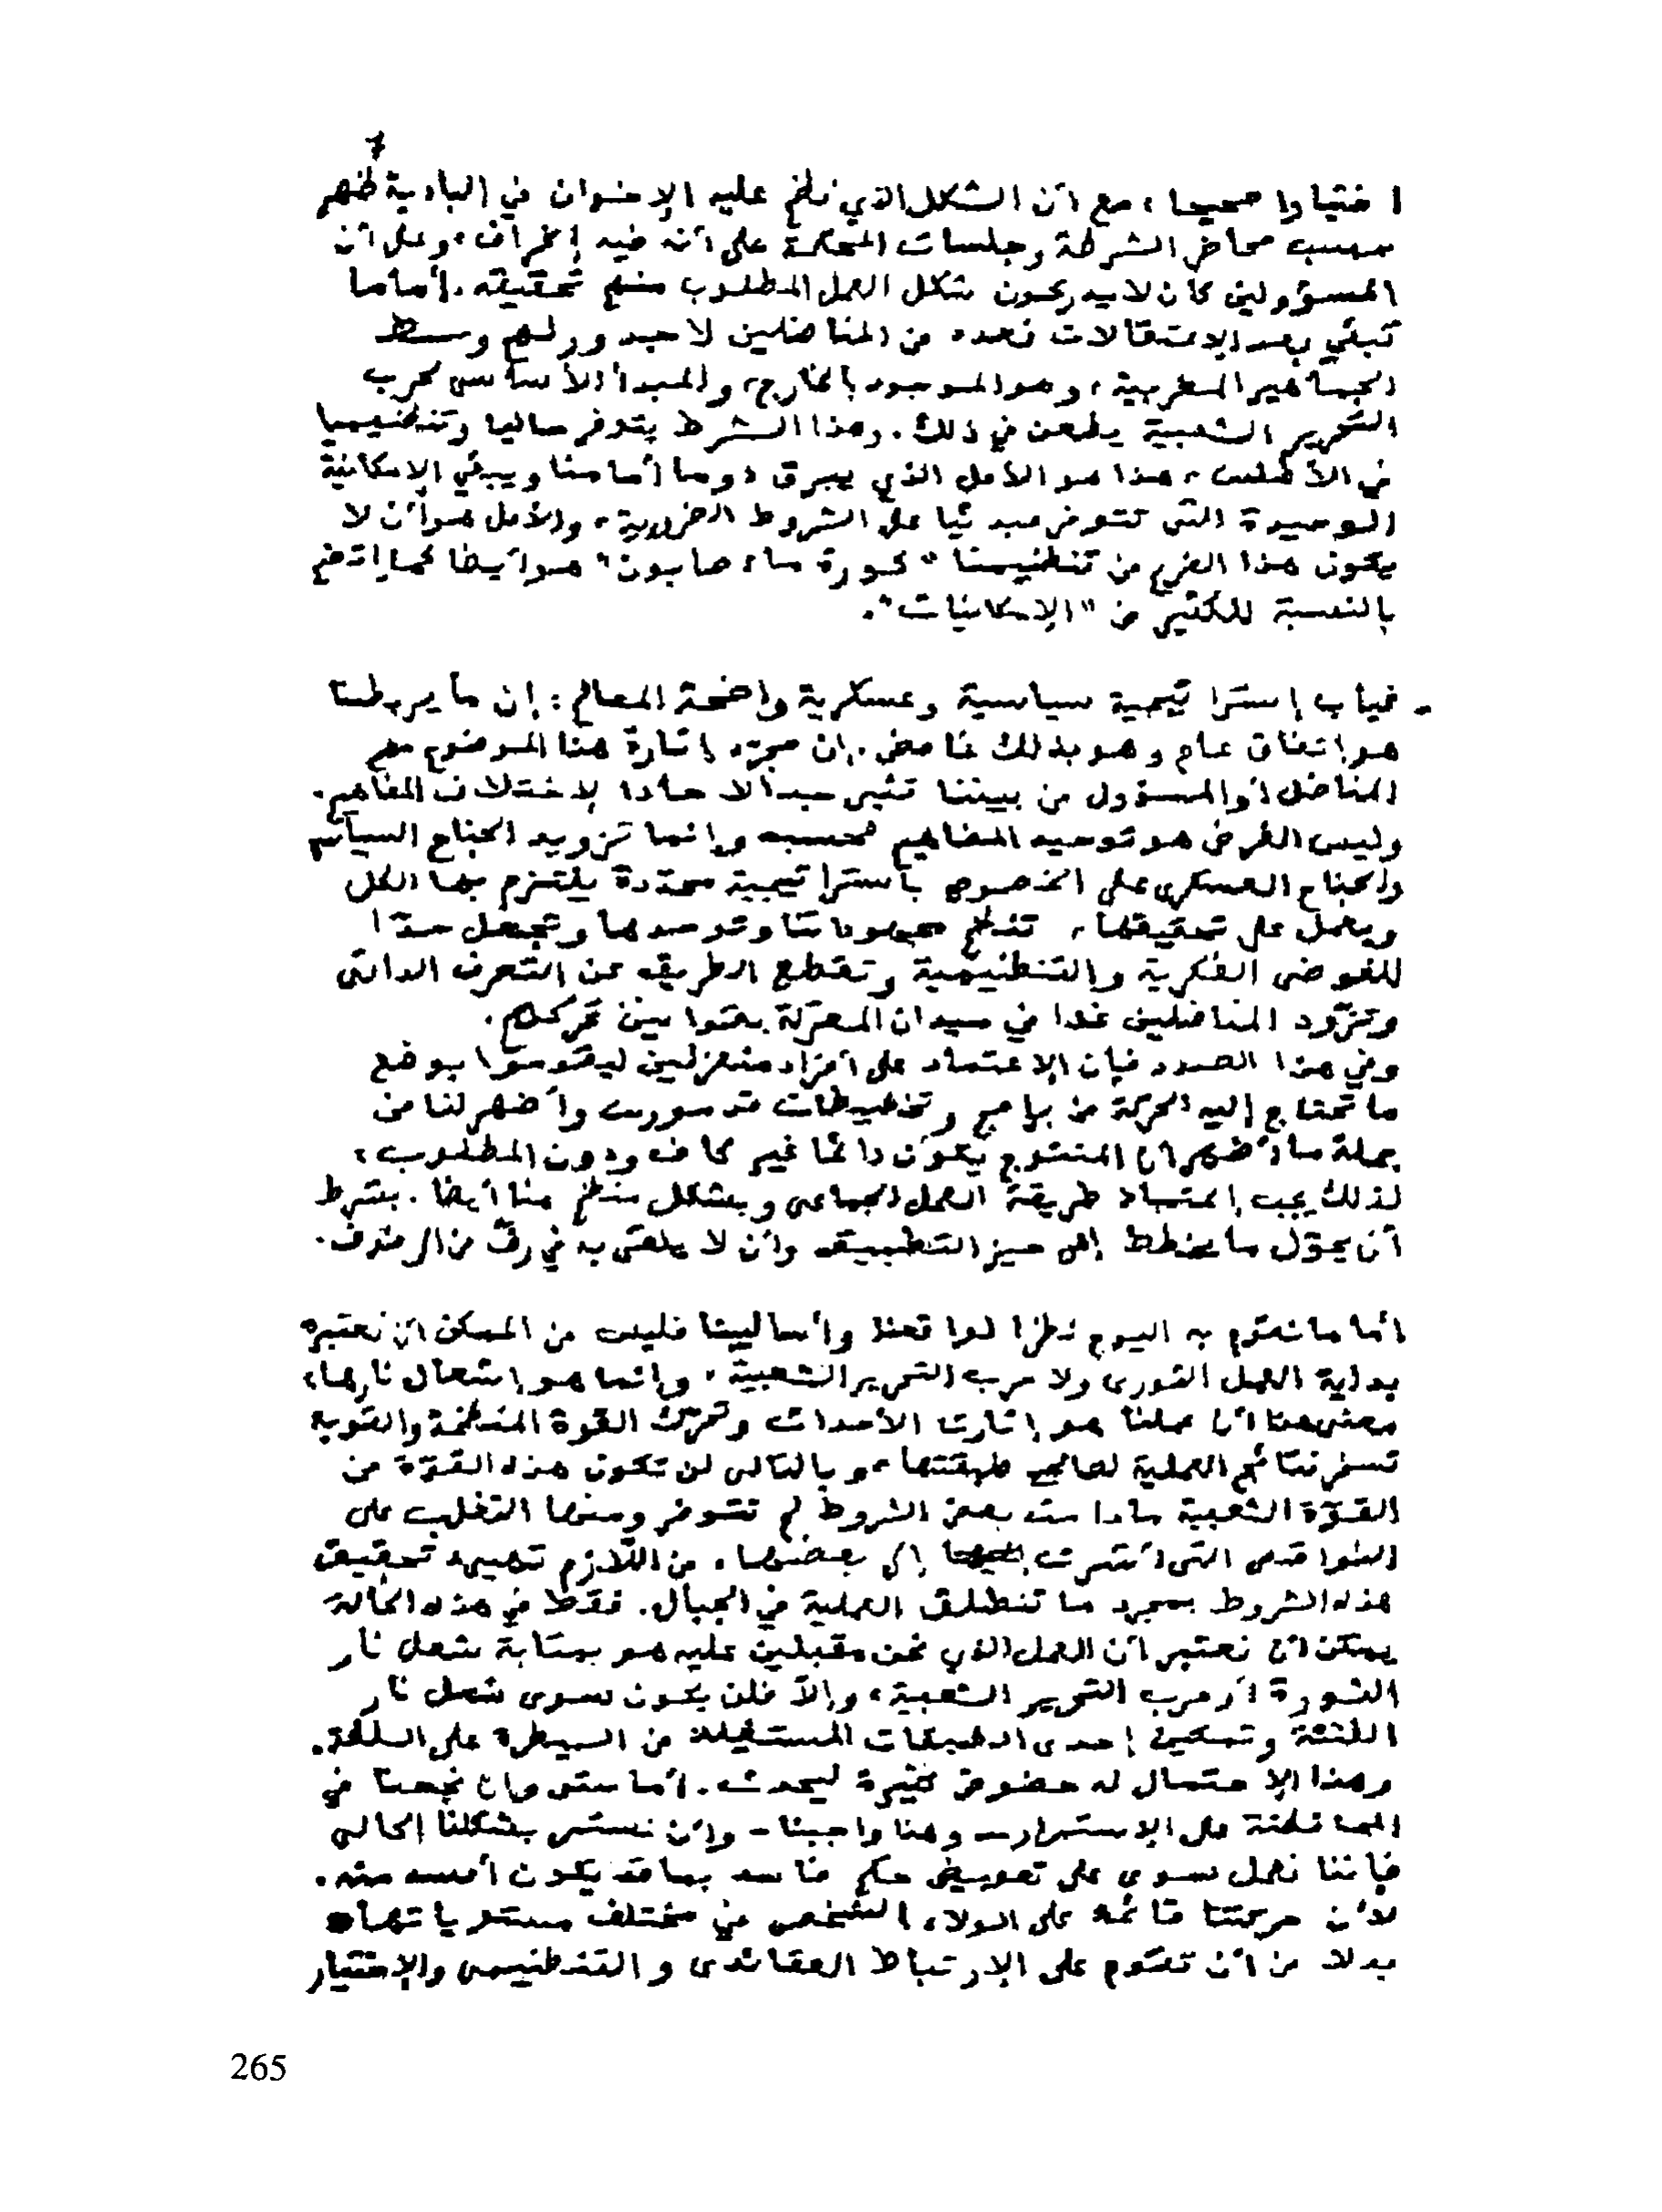 7
اختيارا صحيحا، مع أن الشكل الذي نظم عليه الإخوان في البادية ظهر
حسب محاضر الشرطة وجلسات المحكمة على أنه فيه إنحراف، وعلى أن
المسؤولين كان لا يدركون شكل العمل المطلوب منهم تحقيقه. أما ما
تبقى بعد الإعتقالات نعده من المناضلين لاحد ورلهم وسط
الجماهير المغربية، وهو الموجود بالخارج، والمبدأ الأساسي لحرب
التحرير الشعبية يطعن في ذلك. وهذا الشرط يتوفر حاليا وتنظيميا
في الأطلس، هذا هو الأمل الذي يبرق دوما أمامنا ويبقي الإمكانية
الوحيدة التي تتوفر مبدئيا على الشروط الضرورية، والأمل هو أن لا
يكون هذا الفرع من تنظيمنا "كورة ماء صابون" هو أيضا كما إتضح
بالنسبة للكثير من "الإمكانيات".
- غياب إستراتيجية سياسية وعسكرية واضحة المعالم: إن ما يربطنا
هو إتفاق عام وهو بذلك غامض. إن مجرد إثارة هذا الموضوع مع
المناضل أو المسؤول من بيننا تثير جدالا حادا لإختلاف المفاهيم.
وليس الغرض هو توحيد المفاهيم فحسب وإنما تزويد الجناح السياسي
والجناح العسكري على الخصوص بآستراتيجية محددة يلتزم بها الكل
ويعمل على تحقيقها، تنظم مجهوداتنا وتوحدها وتجعل حدّا
للفوضى الفكرية والتنظيمية وتقطع الطريق عن التعرف الذاتي
وتزوّد المناضلين غدا في ميدان المعركة بقوانين تحركهم.
وفي هذا الصدد فإن الإعتماد على أفراد منعزلين ليقوموا بوضع
ما تحتاج إليه الحركة من برامج وتخطيطات قد مورست وأظهر لنا من
جملة ما أظهر أن المنتوج يكون دائما غير كاف ودون المطلوب،
لذلك يجب إعتماد طريقة العمل الجماعي وبشكل منظم هنا أيضا. بشرط
أن يحوّل ما يخطط إلى حيز التطبيق وأن لا يلقى به في رفّ من الرفوف.
أما ما نقوم به اليوم نظرا لواقعنا وأساليبنا فليس من الممكن أن نعتبره
بداية العمل الثوري ولا حرب التحرير الشعبية، وإنما هو إشعال نارها،
معنى هذا أن عملنا هو إثارت الأحداث وتحرك القوة المنظمة والقوية
تسخر نتائج العملية لصالح طبقتها، وبالتالي لن تكون هذه القوّة من
القوّة الشعبية مادامت بعض الشروط لم تتوفر ومنها التغلب على
النواقص التي أشرت إلى بعضها. من اللّازم تمهيد تحقيق
هذه الشروط بمجرد ما تنطلق العملية في الجبال. فقط في هذه الحالة
يمكن أن نعتبر أن العمل الذي نحن مقبلين عليه هو بمثابة شعل نار
الثورة أو حرب التحرير الشعبية، وإلاّ فلن يكون سوى شعل نار
الفتنة وتمكين إحدى الطبقات المستغلة من السيطرة على السلطة.
وهذا الإحتمال له حضوض كثيرة ليحدث. أما حتى وإن نجحنا في
المحافظة على الإستمرار - وهذا واجبنا - وأن نستمر بشكلنا الحالي
فإننا نعمل سوى على تعويض حكم فاسد بما قد يكون أفسد منه.
لأن حركتنا قائمة على الولاء الشخصي في مختلف مستوياتها
بدلا من أن تقوم على الإرتباط العقائدي والتنظيمي والإختيار
265